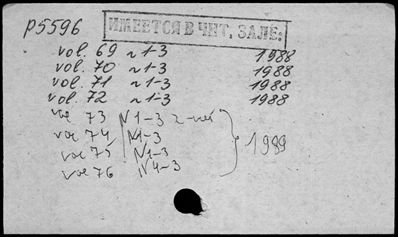 p5596
ИМЕЕТСЯ В ЧИТ. ЗАЛЕ:
vol. 69 n 1-3 1988
vol. 70 n 1-3 1988
vol. 71 n 1-3 1988
vol. 72 n 1-3 1988
vol 73 N1-3
vol 74 N1-3
vol 75 N1-3 1989
vol 76 N1-3